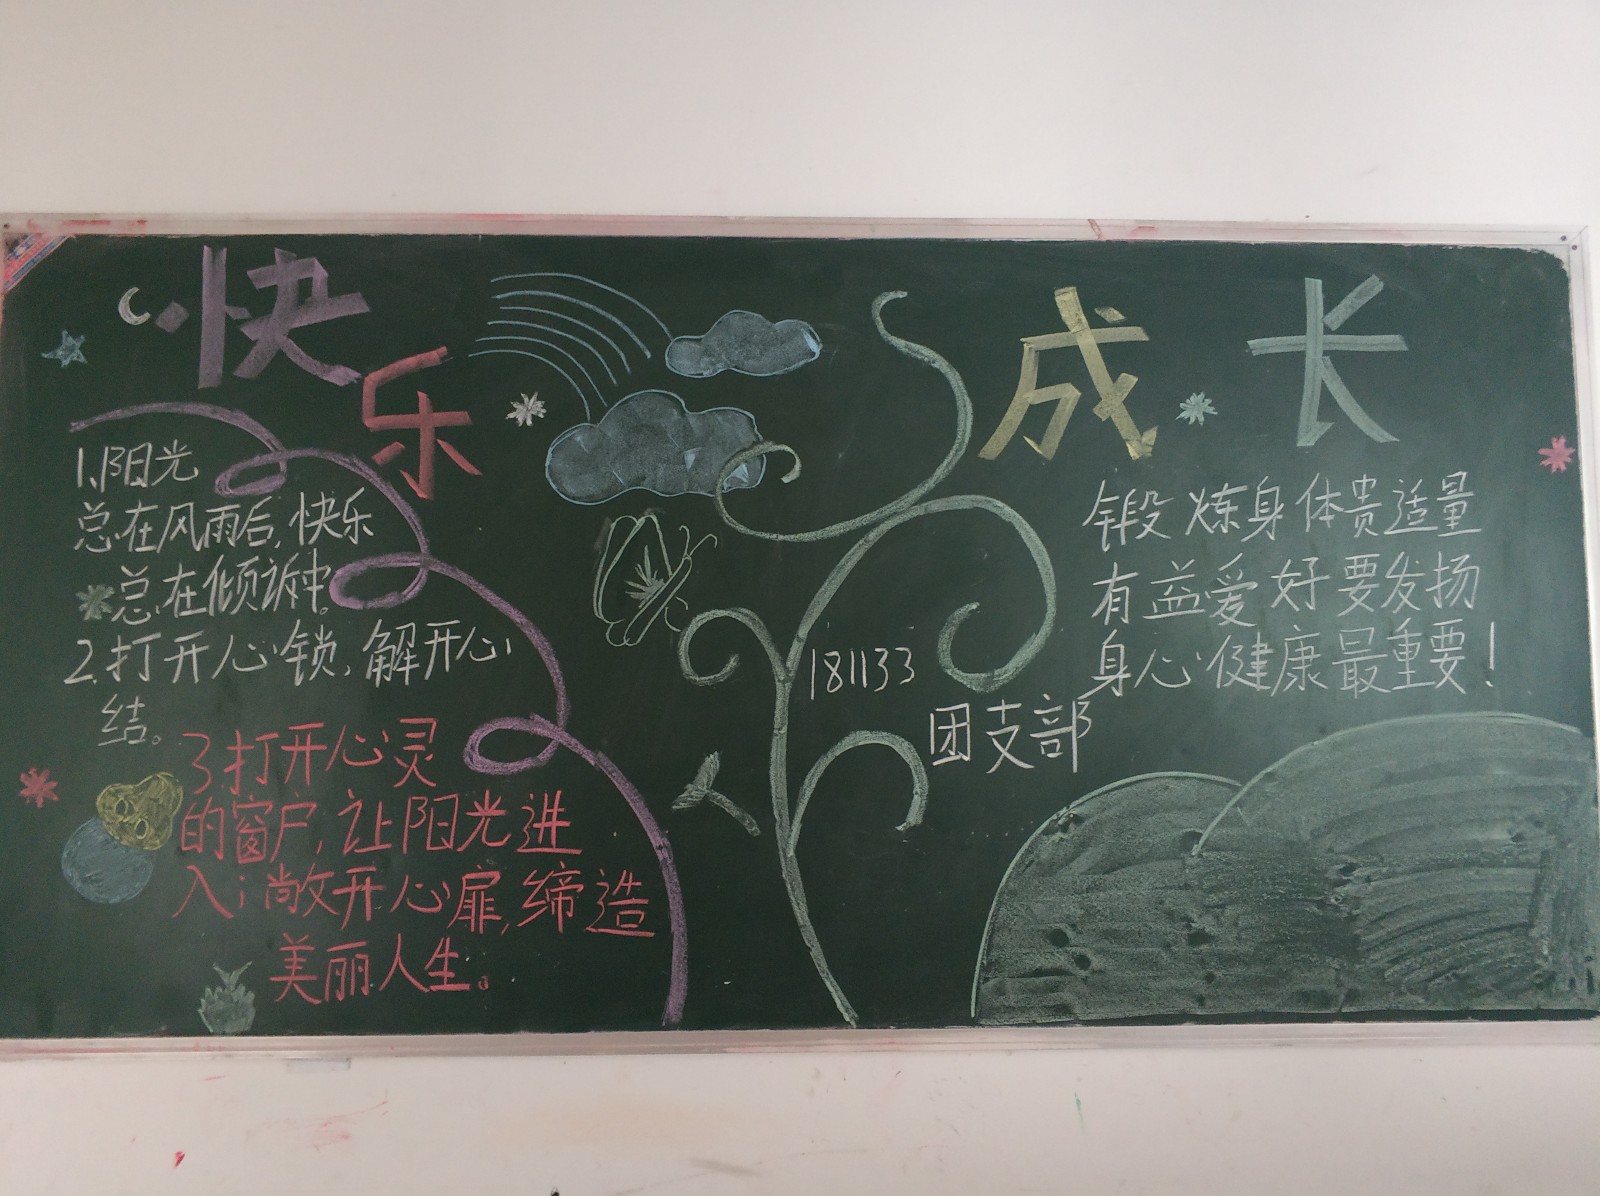 快乐
1.阳光
总在风雨后,快乐
总在倾诉中。
2.打开心锁,解开心
结。
3.打开心灵
的窗户,让阳光进
入;敞开心扉,缔造
美丽人生。
181133
团支部
成长
锻炼身体贵适量
有益爱好要发扬
身心健康最重要!